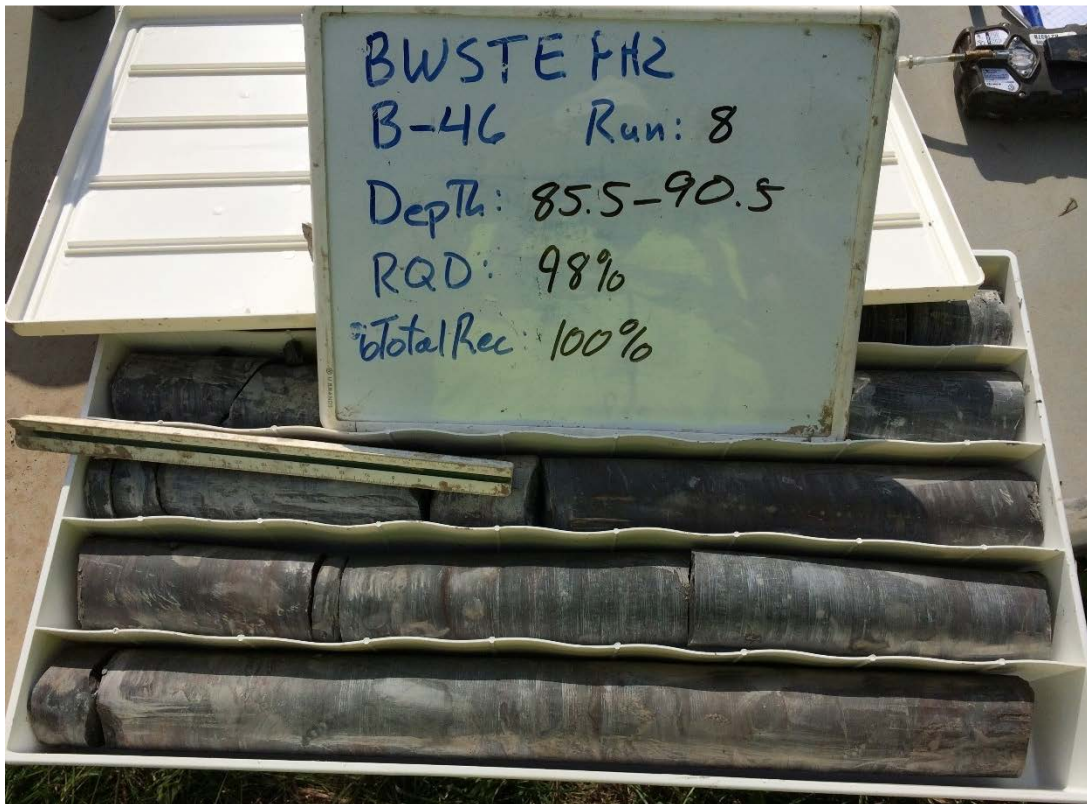 BWSTE PH2
B-46 Run: 8
Depth: 85.5-90.5
RQD: 98%
%Total Rec: 100%